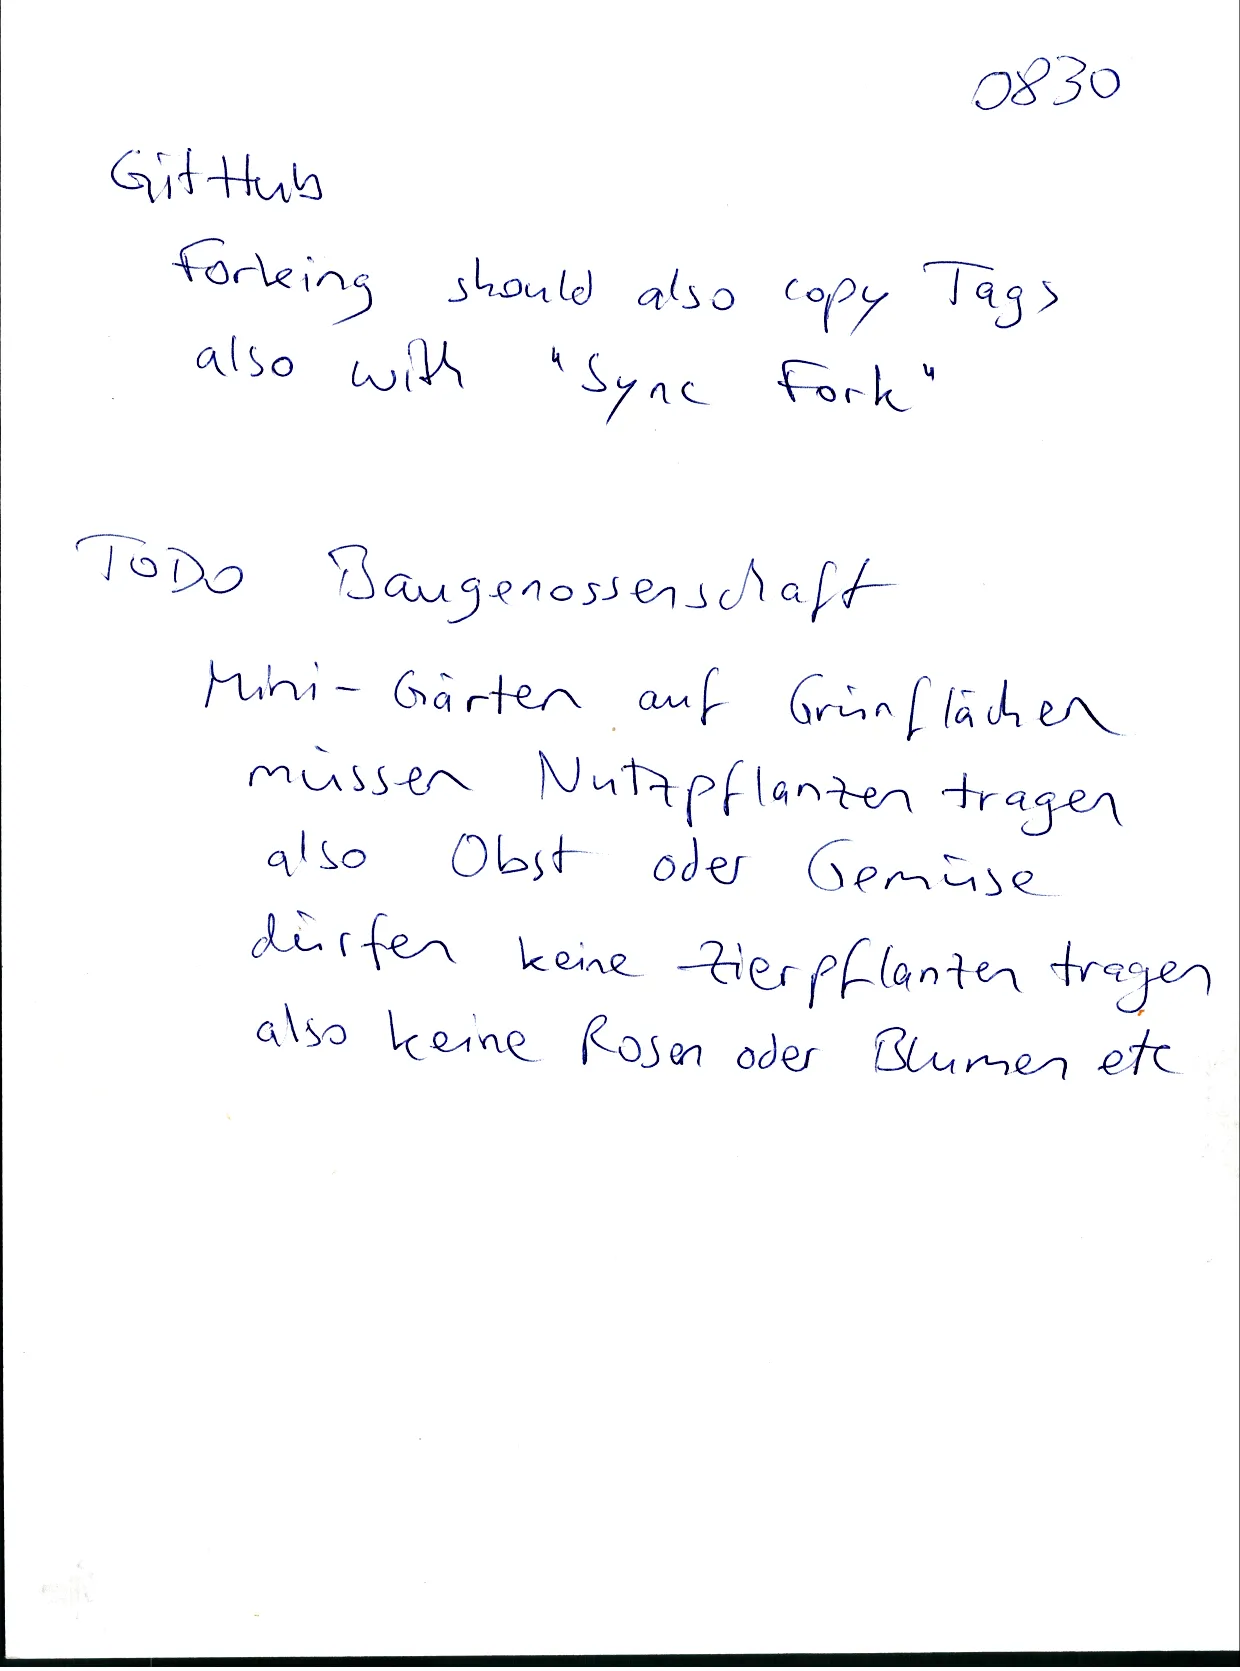 0830
GitHub
Forking should also copy Tags
also with "Sync Fork"
TODO Baugenossenschaft
Mini-Gärten auf Grünflächen
müssen Nutzpflanzen tragen
also Obst oder Gemüse
dürfen keine Zierpflanzen tragen
also keine Rosen oder Blumen etc